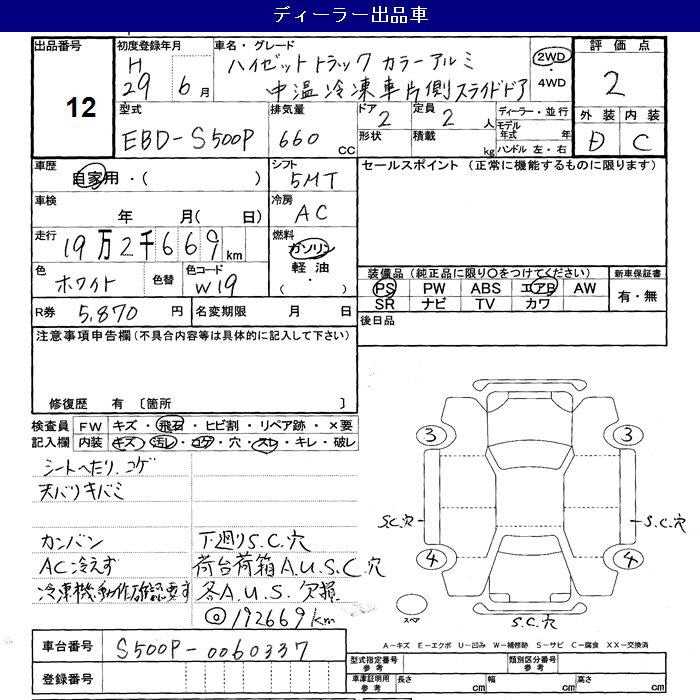 ディーラー出品車
出品番号 12
初度登録年月 H 29 6月
車名・グレード ハイゼットトラック カラーアルミ
中温冷凍車片側スライドドア
2WD・4WD
評価点 2
外装 内装
D C
型式 EBD-S500P
排気量 660 CC
ドア 2 定員 2 人
形状 積載 kg
ディーラー・並行
モデル年式 年
ハンドル 左・右
車歴 自家用・( )
シフト 5MT
車検 年 月( 日)
冷房 AC
走行 19万2千669km
燃料 ガソリン
軽油・( )
色 ホワイト 色替 色コード W19
R券 5,870円 名変期限 月 日
セールスポイント (正常に機能するものに限ります)
装備品 (純正品に限り○をつけてください)
PS PW ABS エアB AW
SR ナビ TV カワ
新車保証書 有・無
後日品
注意事項申告欄(不具合内容等は具体的に記入して下さい)
修復歴 有 〔箇所 〕
検査員記入欄
FW キズ・飛石・ヒビ割・リペア跡・×要
内装 キズ・汚レ・コゲ・穴・スレ・キレ・破レ
シートへたり、コゲ
天バリキバミ
カンバン
AC冷えず
冷凍機動作確認要す
下廻りS.C.穴
荷台荷箱A.U.S.C.穴
各A.U.S.欠損
◎192669km
3 3
S.C.穴 S.C.穴
4 4
スペア
S.C.穴
A-キズ E-エクボ U-凹み W-補修跡 S-サビ C-腐食 XX-交換済
車台番号 S500P-0060337
登録番号
型式指定番号参考 類別区分番号参考
車庫証明用参考 長さ cm 幅 cm 高さ cm